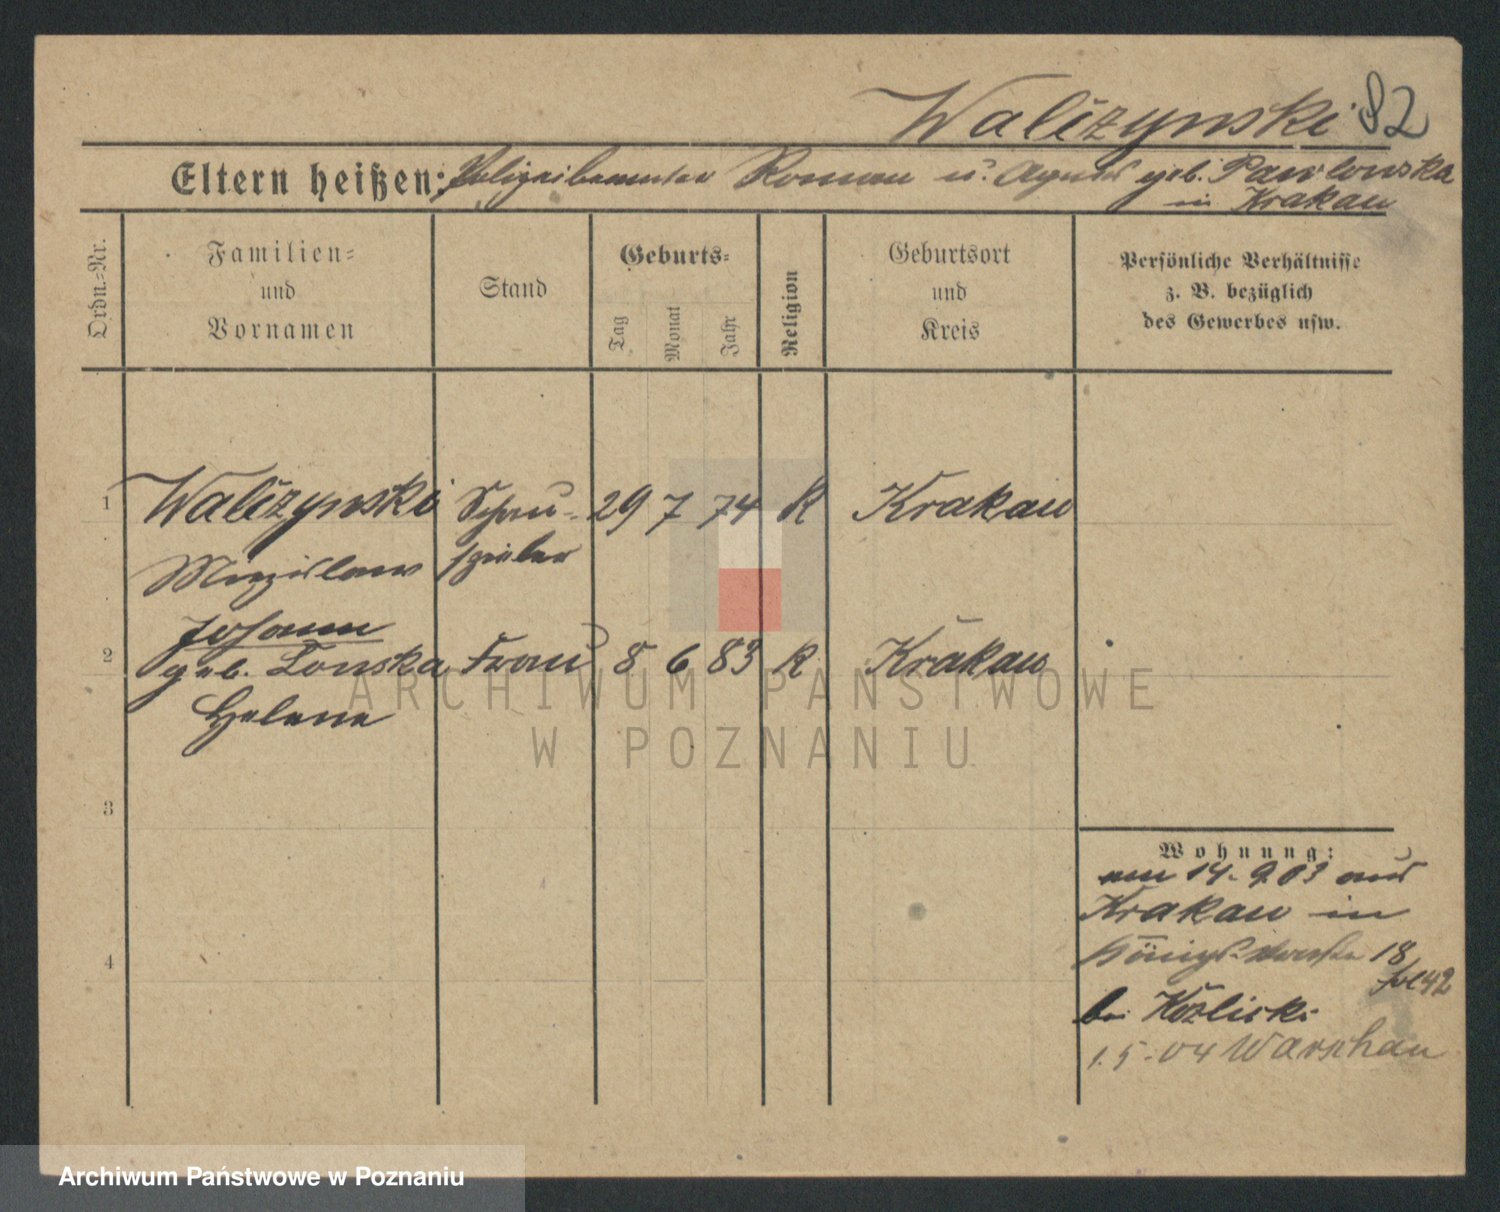 Walczynski 82
Eltern heißen: Polizeibeamter Roman u. Agnes geb. Pawlowska
in Krakau
Ordn.-Nr.
Familien-
und
Vornamen
Stand
Geburts-
Tag
Monat
Jahr
Religion
Geburtsort
und
Kreis
Persönliche Verhältnisse
z. B. bezüglich
des Gewerbes usw.
1 Walczynski Schau- 29 7 74 K Krakau
Miezislaus spieler
Johann
2 geb. Lonska Frau 8 6 83 K Krakau
Helene
3
4
Wohnung:
am 14.9.03 aus
Krakau in
Königs 18
bei Kozlicki
1.5.04 Warschau
ARCHIWUM PAŃSTWOWE
W POZNANIU
Archiwum Państwowe w Poznaniu